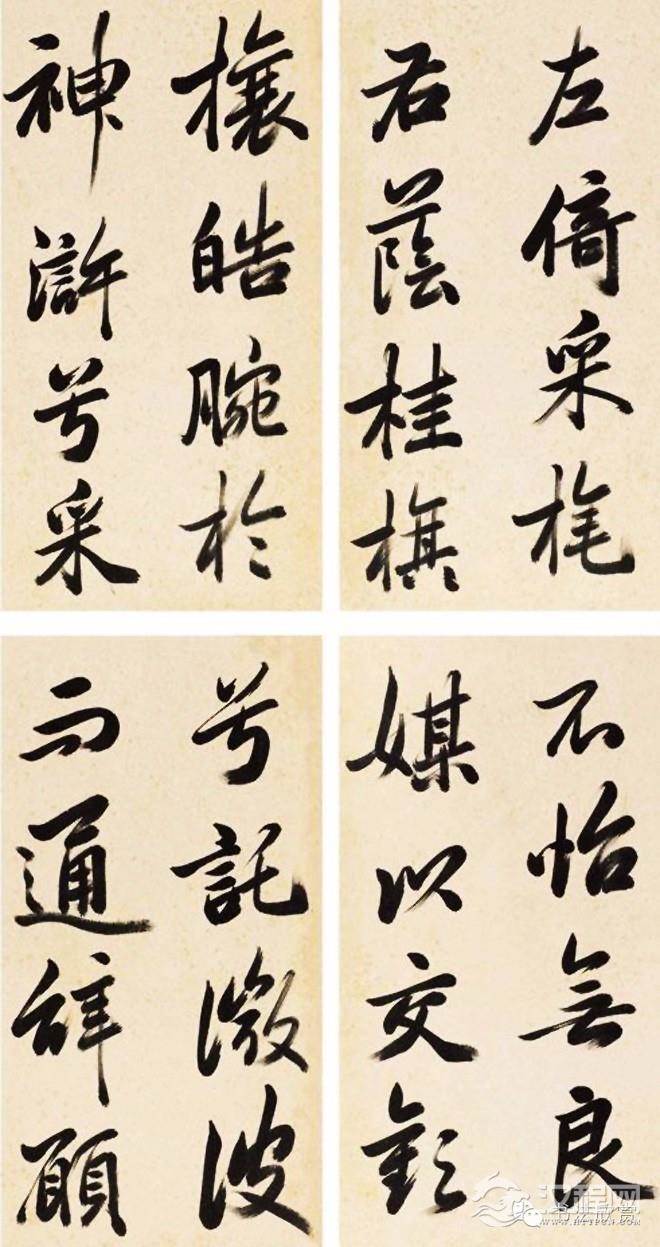 左倚采旄
右蔭桂旗
攘皓腕於
神滸兮采
不怡無良
媒以交歡
兮託微波
而通辭願
汉程网
WWW.HTTPCN.COM